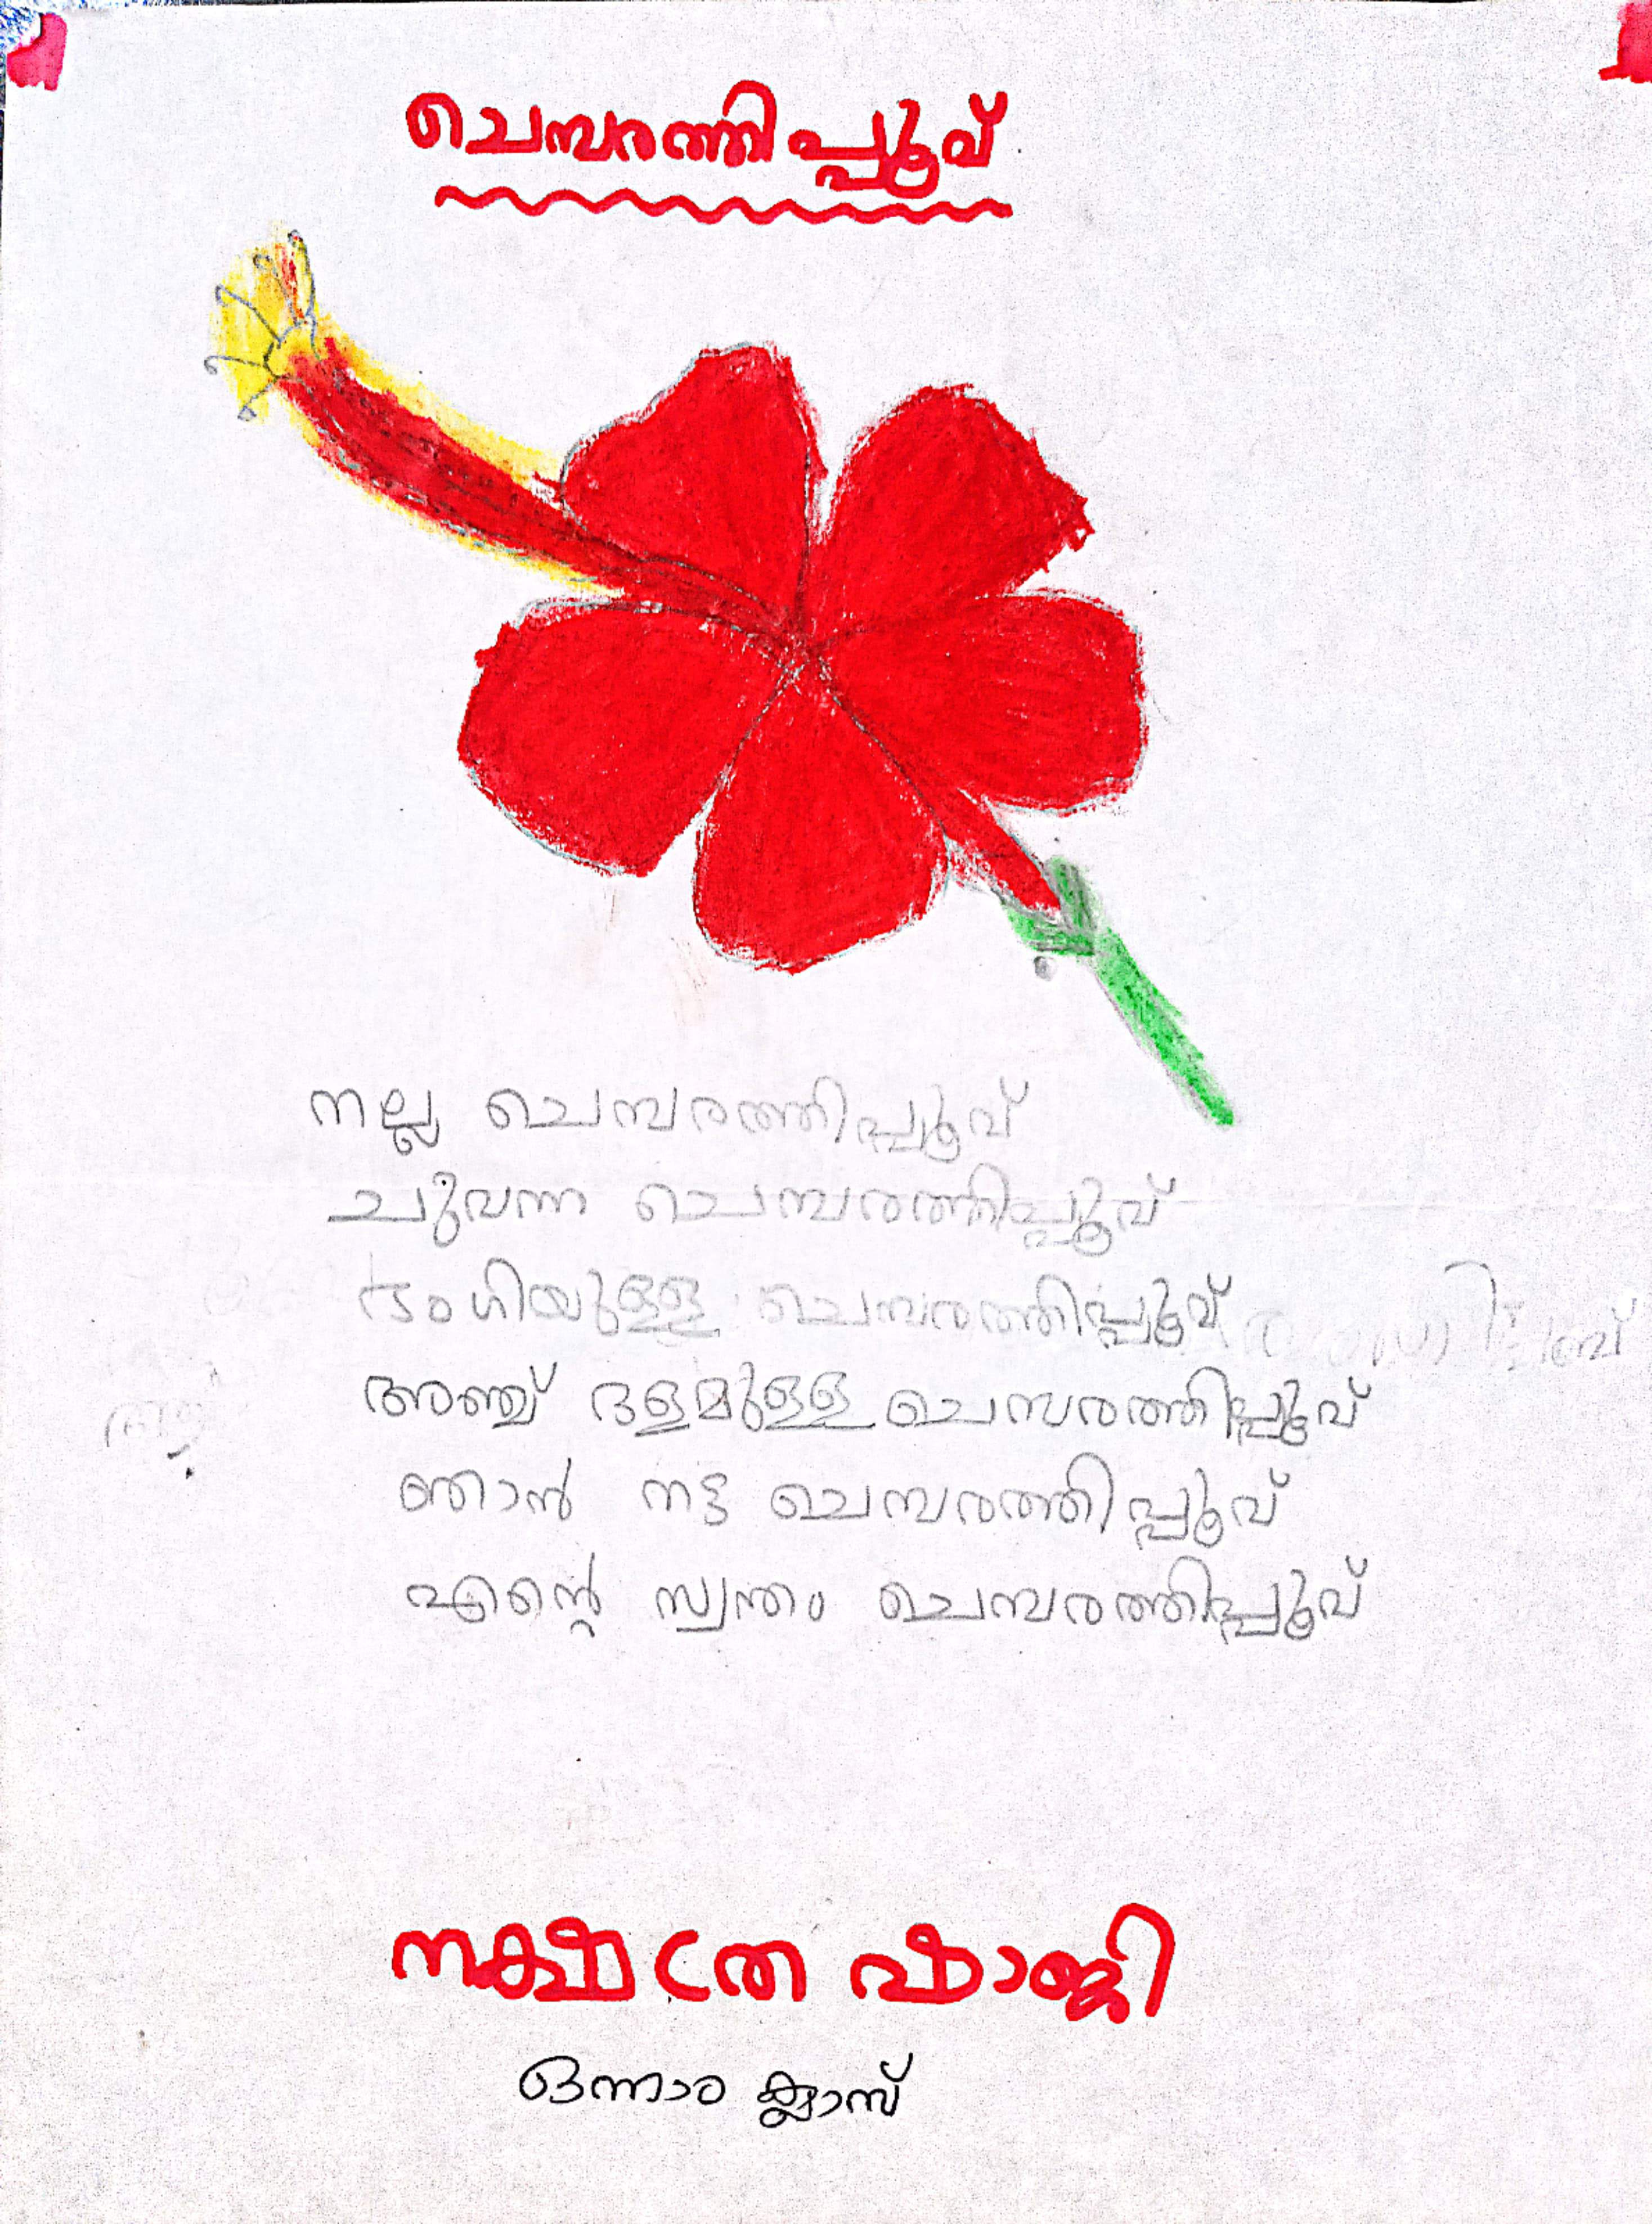 ചെമ്പരത്തിപ്പൂവ്
നല്ല ചെമ്പരത്തിപ്പൂവ്
ചുവന്ന ചെമ്പരത്തിപ്പൂവ്
ഭംഗിയുള്ള ചെമ്പരത്തിപ്പൂവ്
അഞ്ച് ദളമുള്ള ചെമ്പരത്തിപ്പൂവ്
ഞാൻ നട്ട ചെമ്പരത്തിപ്പൂവ്
എന്റെ സ്വന്തം ചെമ്പരത്തിപ്പൂവ്
നക്ഷത്ര ഷാജി
ഒന്നാം ക്ലാസ്